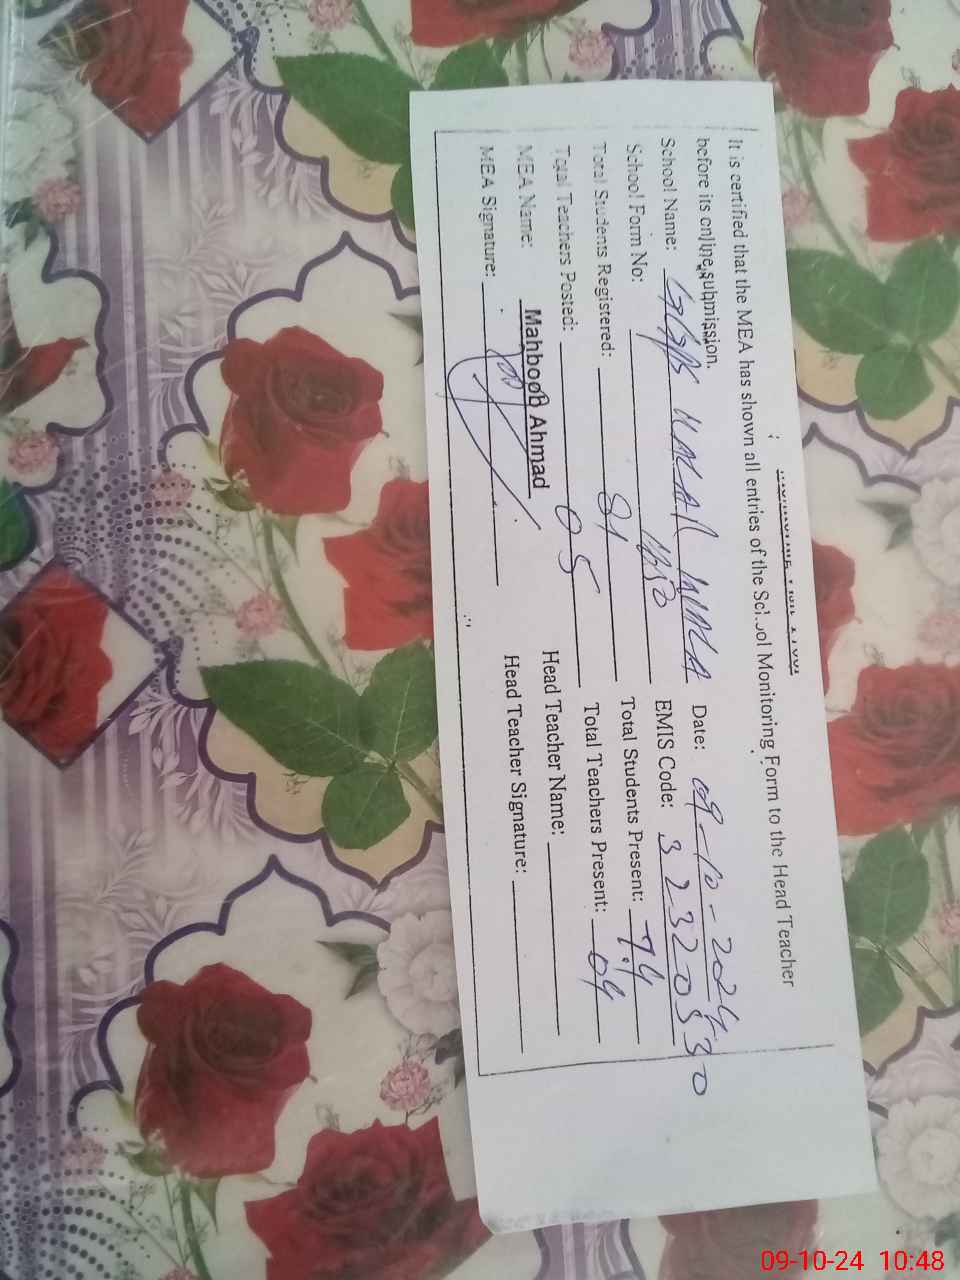 It is certified that the MEA has shown all entries of the School Monitoring Form to the Head Teacher
before its online submission.
School Name: Date: 09-10-2024
School Form No: EMIS Code: 32320530
Total Students Registered: 81 Total Students Present: 74
Total Teachers Posted: 05 Total Teachers Present: 04
MEA Name: Mahboob Ahmad Head Teacher Name:
MEA Signature: Head Teacher Signature:
09-10-24 10:48